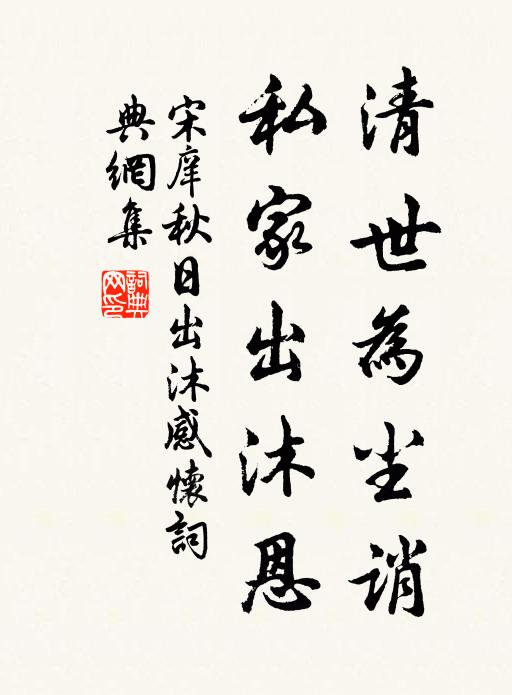 清世為坐誚
私家出沐恩
宋庠秋日出沐感懷詞
典網集
詞典网印